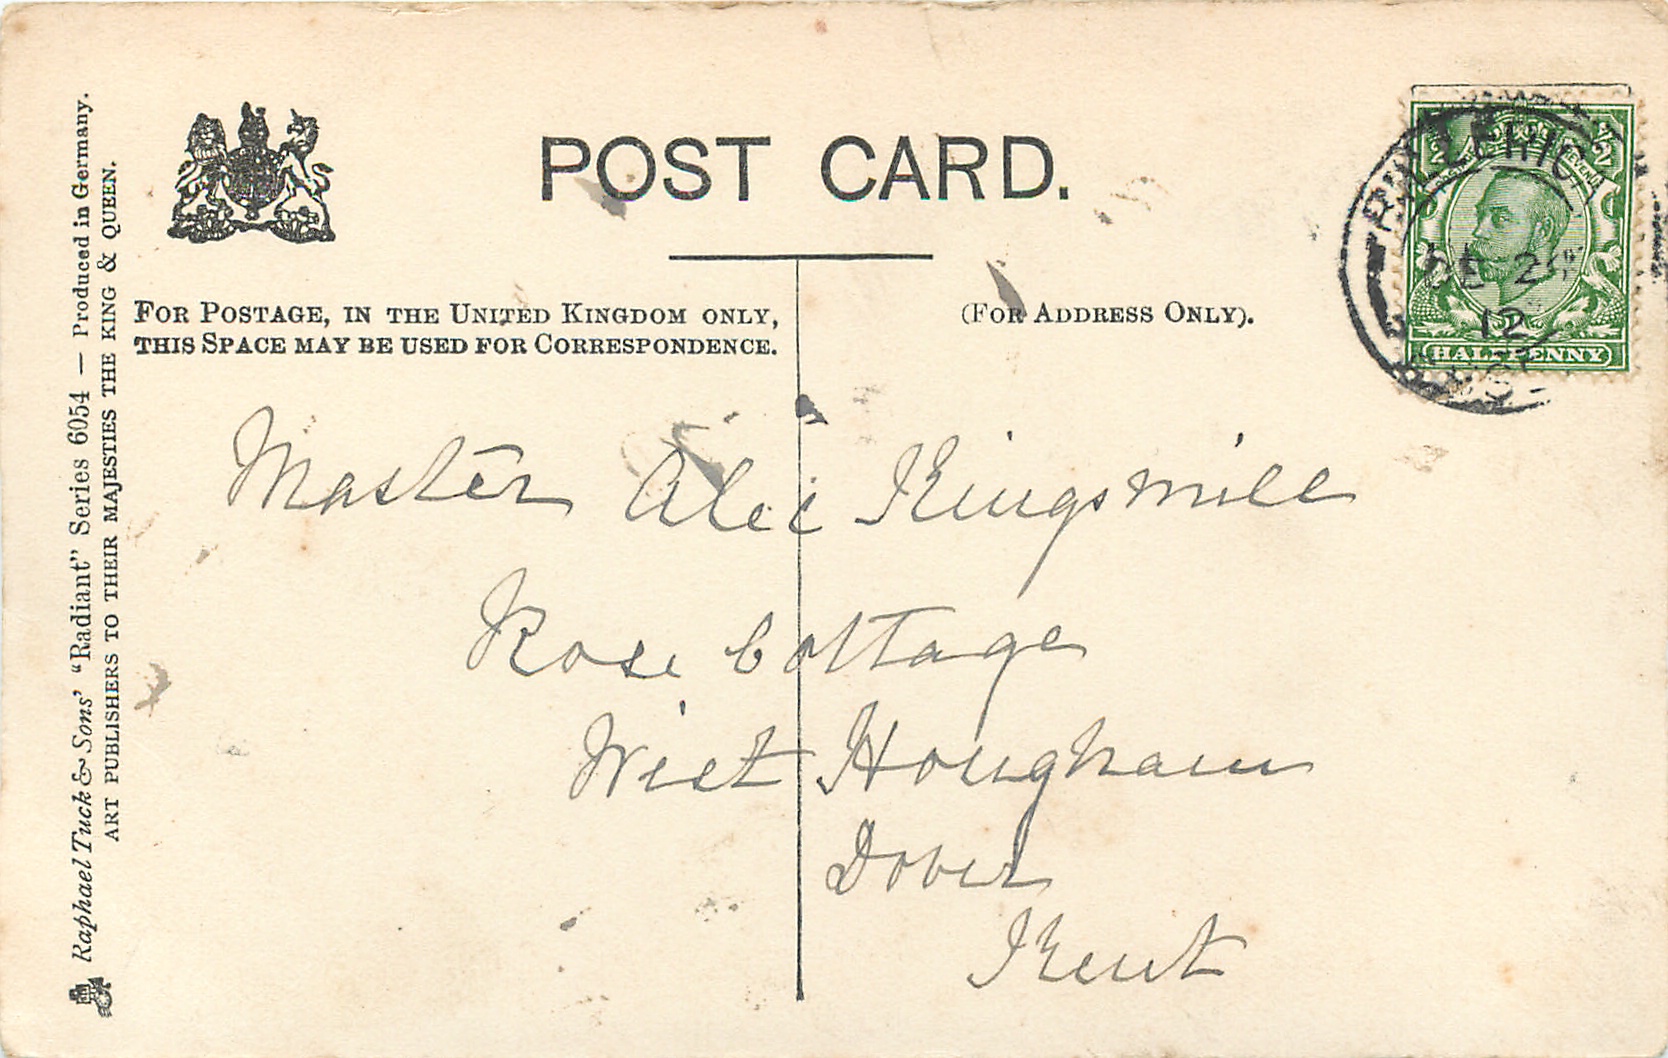 Raphael Tuck & Sons' "Radiant" Series 6054 — Produced in Germany.
ART PUBLISHERS TO THEIR MAJESTIES THE KING & QUEEN.
POST CARD.
FOR POSTAGE, IN THE UNITED KINGDOM ONLY,
THIS SPACE MAY BE USED FOR CORRESPONDENCE.
(FOR ADDRESS ONLY).
DE 24
12
HALFPENNY
Master Alec Kingsmill
Rose Cottage
West Hougham
Dover
Kent